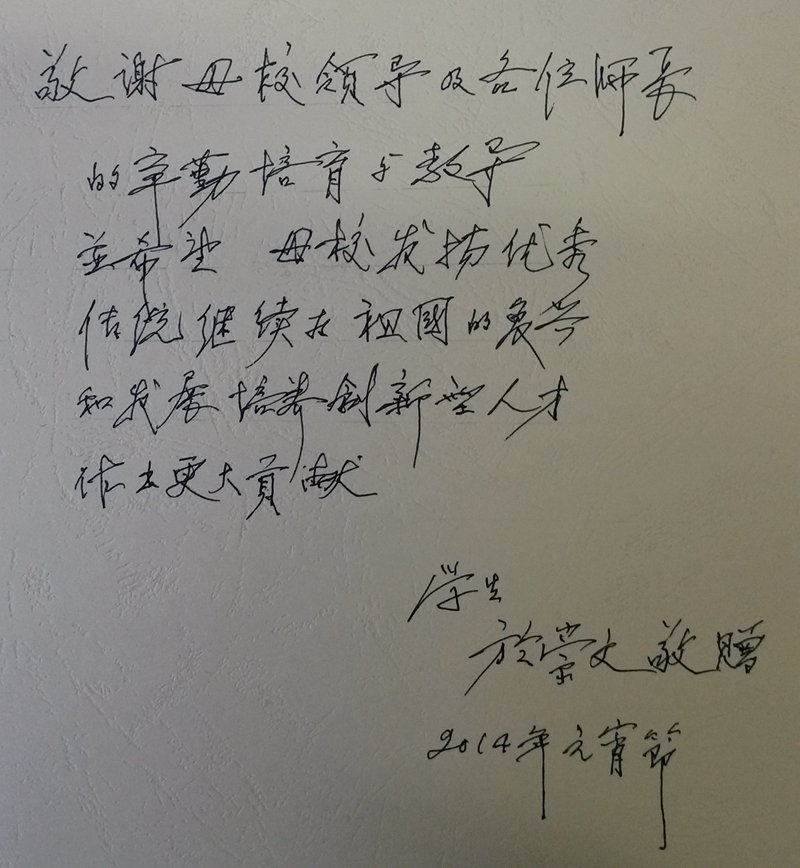 敬谢母校领导及各位师长
的辛勤培育与教导
並希望 母校发扬优秀
传统继续在祖國的复兴
和发展培养创新型人才
作出更大貢献
学生
於崇文敬贈
2014年元宵節